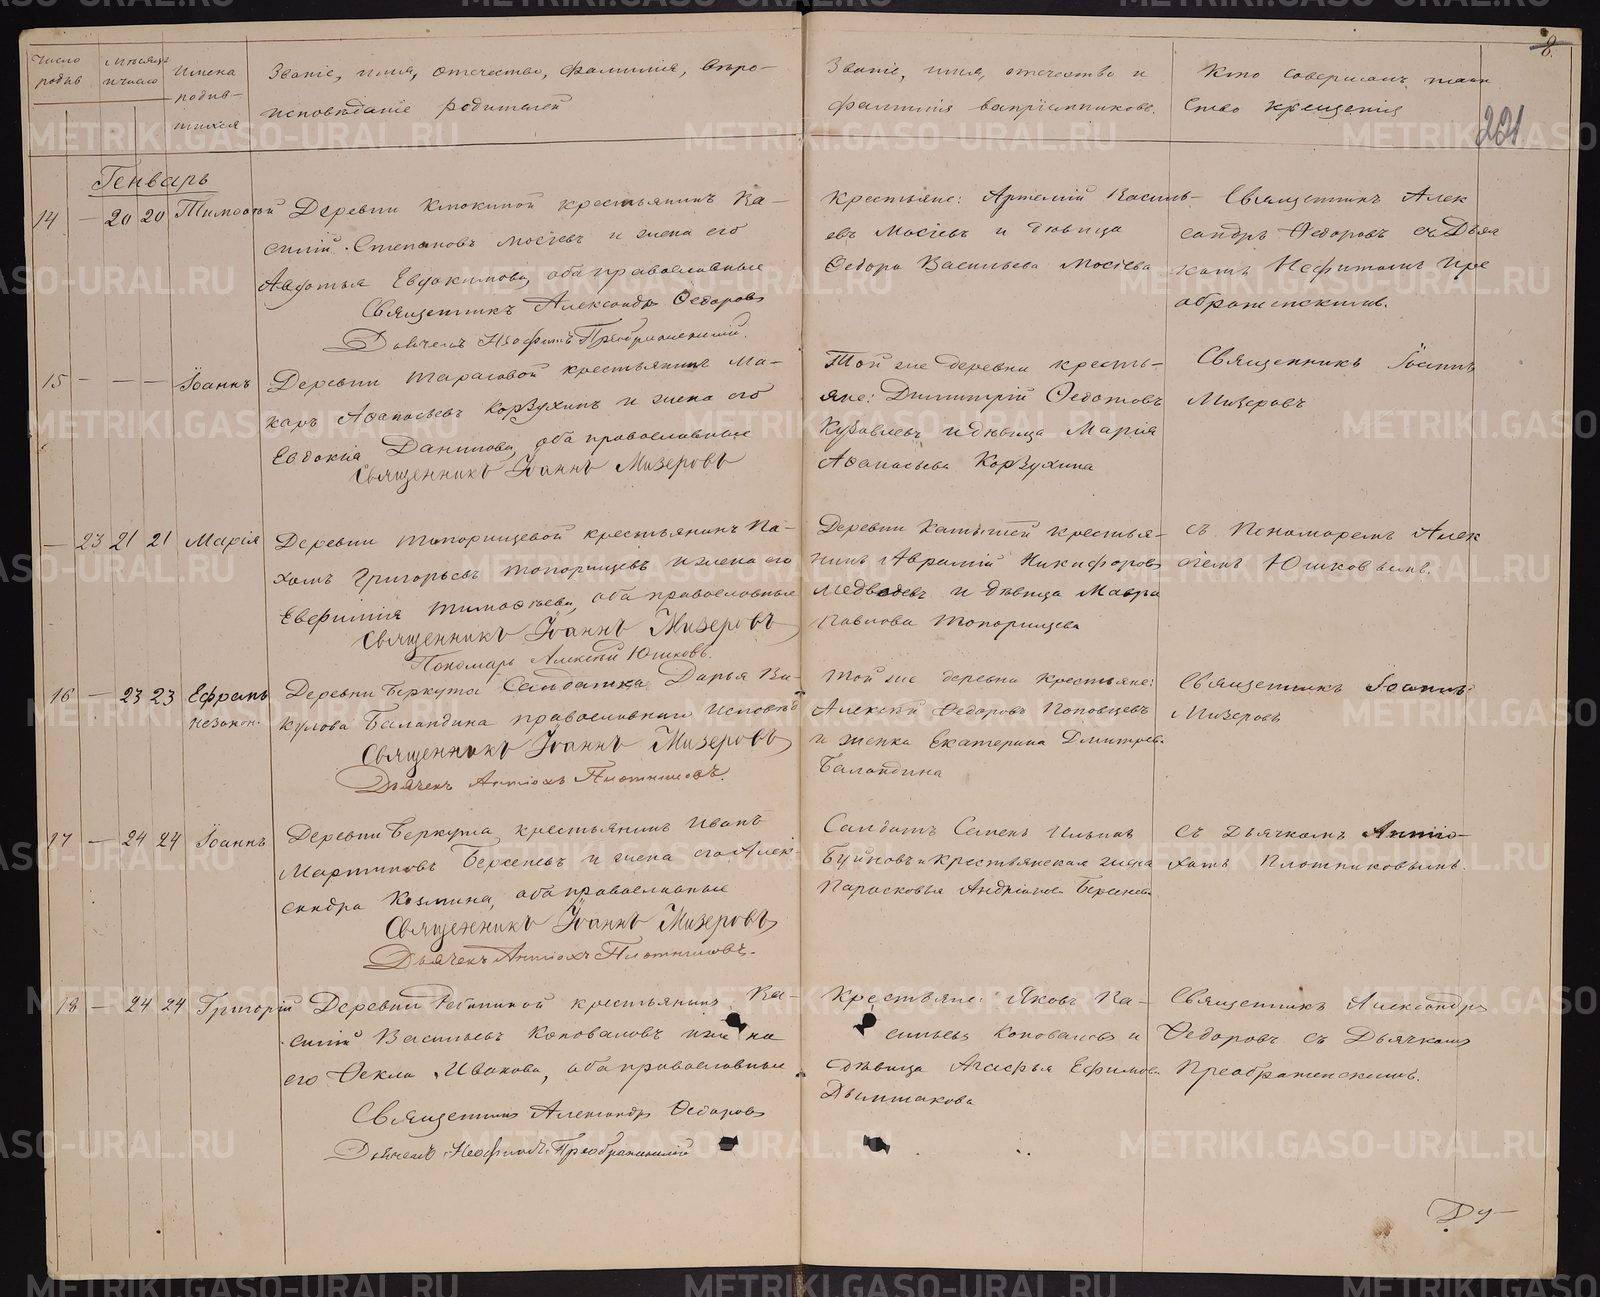 Число родив
Месяцъ и число
Имена родив-
шихся
Званіе, имя, отечество, фамилія, вѣро-
исповѣданіе родителей
Званіе, имя, отечество и
фамилія воспріемниковъ.
Кто совершалъ таин
ство крещенія
8.
221.
Генварь
14 — 20 20 Тимофей
Деревни Клюкиной крестьянинъ Ва-
силій Степановъ Мосіевъ и жена его
Авдотья Евдокимова, оба православные
Священникъ Александръ Ѳедоровъ
Дьячекъ Неофитъ Преображенский.
Крестьяне: Артемій Василь-
евъ Мосіевъ и дѣвица
Ѳедора Васильева Мосіева
Священникъ Алек
сандръ Ѳедоровъ съ Дья
комъ Неофитомъ Пре
ображенскимъ.
15 — — — Іоаннъ
Деревни Тарасовой крестьянинъ Ма-
каръ Аѳанасьевъ Корзухинъ и жена его
Евдокіа Данилова, оба православные
Священникъ Іоаннъ Мизеровъ
Той же деревни кресть-
яне: Димитрій Ѳедотовъ
и дѣвица Марія
Аѳанасьева Корзухина
Священникъ Іоаннъ
Мизеровъ
— 23 21 21 Марія
Деревни Топорищевой крестьянинъ Па-
хомъ Григорьевъ Топорищевъ и жена его
Евфимія Тимоѳеева, оба православные
Священникъ Іоаннъ Мизеровъ
Пономарь Алексѣй Юшковъ.
Деревни крестья-
нинъ Авраамій Никифоровъ
Медвѣдевъ и дѣвица Мавра
Павлова Топорищева
Съ Пономаремъ Алек
сѣемъ Юшковымъ.
16 — 23 23 Ефремъ
незакон.
Деревни Беркута Салдатка Дарья Ва-
кулова Баландина православнаго исповѣд
Священникъ Іоаннъ Мизеровъ
Дьячекъ Антіохъ Плотниковъ.
Той же деревни крестьяне:
Алексѣй Ѳедоровъ Поповцевъ
и женка Екатерина Дмитріева
Баландина
Священникъ Іоаннъ
Мизеровъ
17 — 24 24 Іоаннъ
Деревни Беркута, крестьянинъ Иванъ
Мартиновъ Берсеневъ и жена его Алек-
сандра Козмина, оба православные
Священникъ Іоаннъ Мизеровъ
Дьячекъ Антіохъ Плотниковъ.
Салдатъ Семенъ Ильинъ
Буйновъ и крестьянская жена
Парасковья Андріанова Берсенева
Съ Дьячкомъ Антіо-
хомъ Плотниковымъ.
18 — 24 24 Григорій
Деревни Рябининой крестьянинъ Ва-
силій Васильевъ Коноваловъ и жена
его Ѳекла Иванова, оба православные
Священникъ Александръ Ѳедоровъ
Дьячекъ Неофитъ Преображенский
Крестьяне: Яковъ Ва-
сильевъ Коноваловъ и
дѣвица Агафья Ефимова
Дымшакова
Священникъ Александръ
Ѳедоровъ съ Дьячкомъ
Преображенскимъ.
Ду-
METRIKI.GASO-URAL.RU